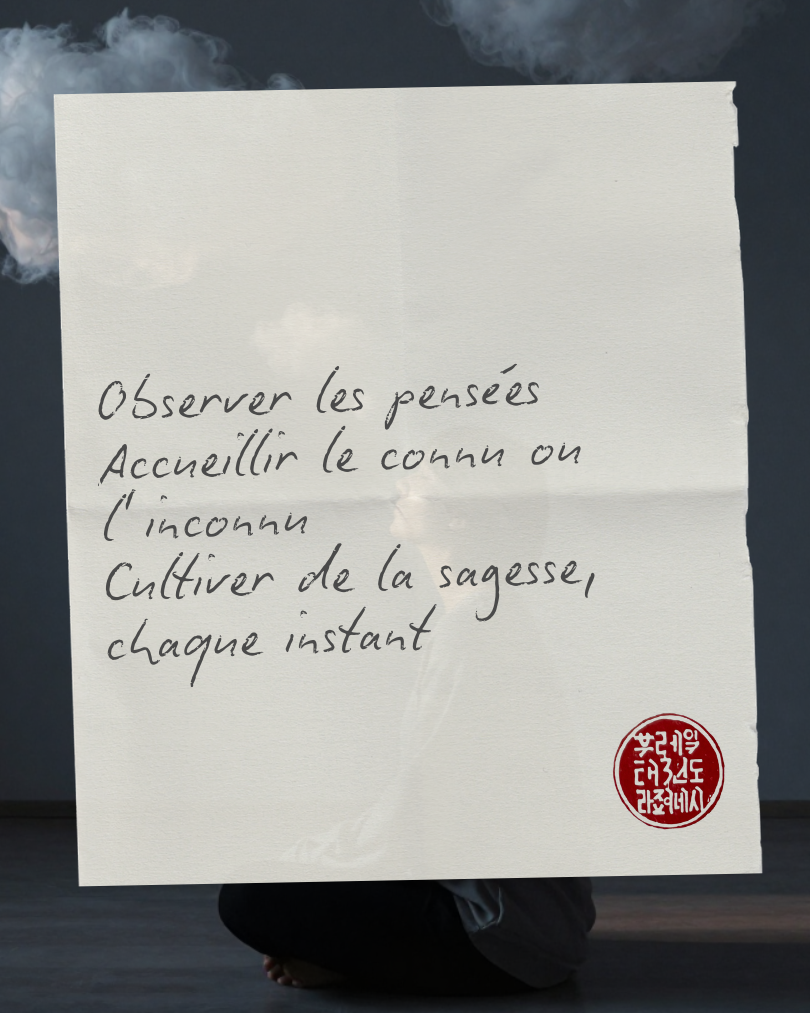 Observer les pensées
Accueillir le connu ou
l'inconnu
Cultiver de la sagesse,
chaque instant